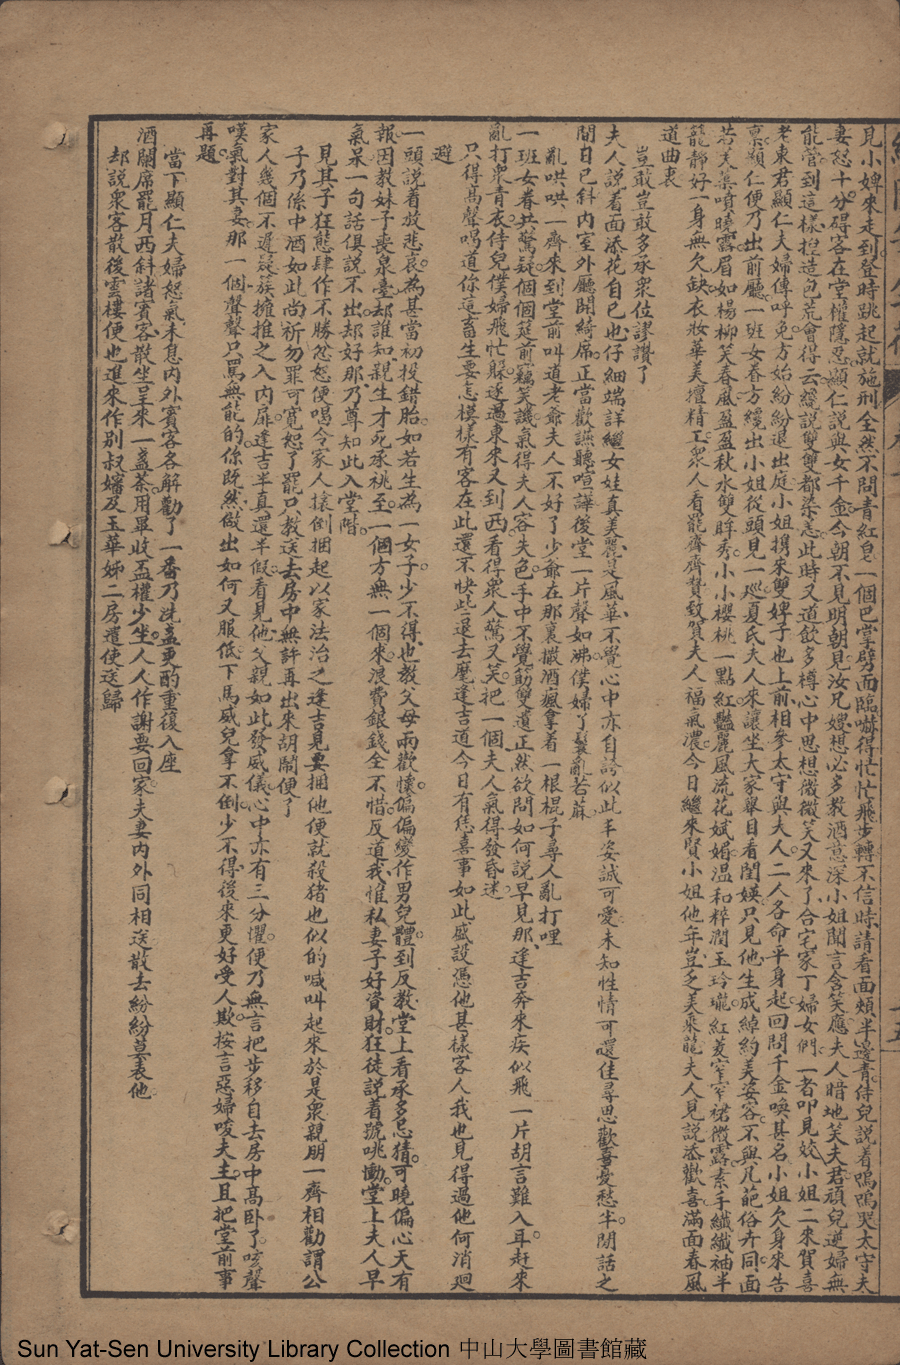 見小婢來走到登時跳起就施刑全然不問青紅皂一個巴掌劈面臨嚇得忙忙飛步轉不信時請看面頰半邊青侍兒說着嗚嗚哭太守夫
妻怒十分碍客在堂權隱忍顯仁說與女千金今朝不見明朝見汝兄嫂想必多教酒意深小姐聞言含笑應夫人暗地笑夫君頑兒逆婦無
能管到這樣揑造包荒會得云纔說雙雙都染恙此時又道飲多樽心中思想微微笑又來了合宅家丁婦女們一者叩見姣小姐二來賀喜
老東君顯仁夫婦傳呼免方始紛紛退出庭小姐携來雙婢子也上前相參太守與夫人二人各命平身起回問千金喚甚名小姐欠身來告
禀顯仁便乃出前廳一班女眷方纔出小姐從頭見一廵夏氏夫人來讓坐大家舉目看閨媖只見他生成綽約美姿容不與凡葩俗卉同面
若芙蕖噴曉露眉如楊柳笑春風盈盈秋水雙眸秀小小櫻桃一點紅豔麗風流花斌媚温和粹潤玉玲瓏紅菱窄窄裙微露素手纖纖袖半
籠靜好一身無欠缺衣妝華美擅精工衆人看罷齊齊賛致賀夫人福氣濃今日繼來賢小姐他年豈乏美乘龍夫人見說添歡喜滿面春風
道曲衷
豈敢豈敢多承衆位謬讚了
夫人說着面添花自已也仔細端詳繼女娃真美麗是風華不覺心中亦自誇似此丰姿誠可愛未知性情可還佳尋思歡喜憂愁半閒話之
間日已斜內室外廳開綺席正當歡讌聽喧譁後堂一片聲如沸僕婦丫鬟亂若蔴
亂哄哄一齊來到堂前叫道老爺夫人不好了少爺在那裏撒酒瘋拿着一根棍子尋人亂打哩
一班女眷共驚疑個個筵前竊笑譏氣得夫人容失色手中不覺筯雙遺正然欲問如何說早見那逢吉奔來疾似飛一片胡言難入耳赶來
亂打衆青衣侍兒僕婦飛忙躱逐過東來又到西看得衆人驚又笑把一個夫人氣得發昏迷
只得高聲喝道你這畜生要怎模樣有客在此還不快些退去麼逢吉道今日有恁喜事如此盛設憑他甚樣客人我也見得過他何消廻
避
一頭說着放悲哀為甚當初投錯胎如若生為一女子少不得也教父母兩歡懷偏偏變作男兒體到反教堂上看承多忌猜可曉偏心天有
報因教妹子喪泉臺却誰知親生才死承祧至一個方無一個來浪費銀錢全不惜反道我惟私妻子好資財狂徒說着號咷慟堂上夫人早
氣呆一句話俱說不出却好那乃尊知此入堂階
見其子狂態肆作不勝忿怒便喝令家人攘倒捆起以家法治之逢吉見要捆他便就殺猪也似的喊叫起來於是衆親朋一齊相勸謂公
子乃係中酒如此尚祈勿罪可寬恕了罷只教送去房中無許再出來胡鬧便了
家人幾個不遲疑簇擁推之入內扉逢吉半真還半假看見他父親如此發威儀心中亦有三分懼便乃無言把步移自去房中高卧了咳聲
嘆氣對其妻那一個聲聲只罵無能的你既然做出如何又服低下馬威兒拿不倒少不得後來更好受人欺按言惡婦唆夫主且把堂前事
再題
當下顯仁夫婦怒氣未息內外賓客各解勸了一番乃洗盞更酌重復入座
酒闌席罷月西斜諸賓客散坐呈來一盞茶用畢收盃權少坐人人作謝要回家夫妻內外同相送散去紛紛莫表他
却說衆客散後雲樓便也進來作別叔嬸及玉華姊二房遣使送歸
Sun Yat-Sen University Library Collection 中山大學圖書館藏